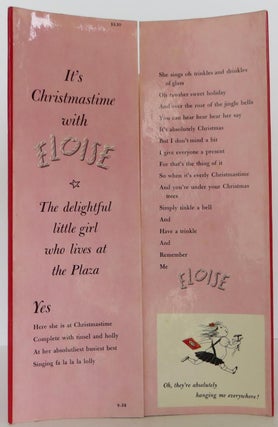 $3.50
It's
Christmastime
with
ELOISE
The delightful
little girl
who lives at
the Plaza
Yes
Here she is at Christmastime
Complete with tinsel and holly
At her absolutliest busiest best
Singing fa la la la lolly
9-58
She sings oh trinkles and drinkles
of glass
Oh rawther sweet holiday
And over the rest of the jingle bells
You can hear hear hear her say
It's absolutely Christmas
But I don't mind a bit
I give everyone a present
For that's the thing of it
So when it's exactly Christmastime
And you're under your Christmas
trees
Simply tinkle a bell
And
Have a trinkle
And
Remember
Me
ELOISE
Oh, they're absolutely
hanging me everywhere!